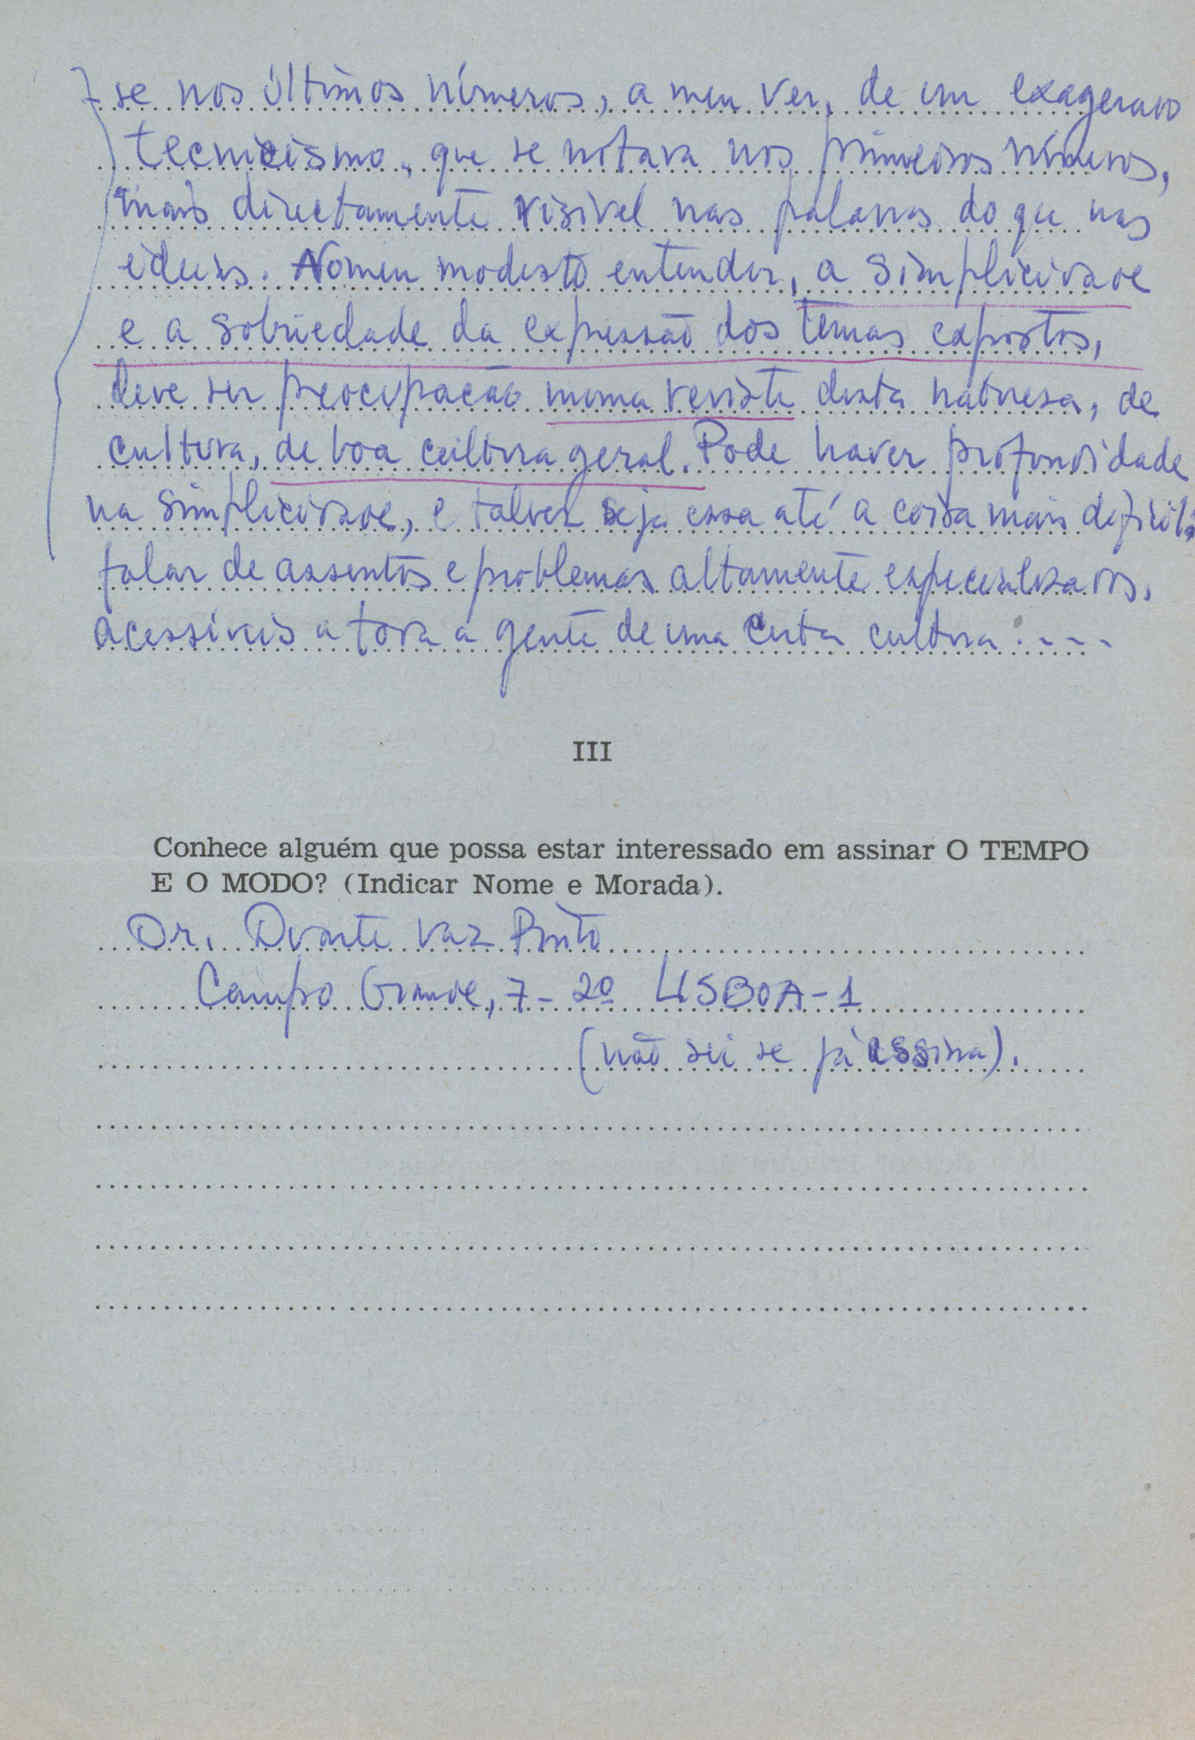 se nos últimos números, a meu ver, de um exagerado
tecnicismo, que se notava nos primeiros números,
mais directamente visivel nas palavras do que nas
ideias. No meu modesto entender, a simplicidade
e a sobriedade da expressão dos temas expostos,
deve ser preocupação numa revista desta natureza, de
cultura, de boa cultura geral. Pode haver profundidade
na simplicidade, e talvez seja essa até a coisa mais dificil:
falar de assuntos e problemas altamente especializados,
acessiveis a toda a gente de uma certa cultura . - - -
III
Conhece alguém que possa estar interessado em assinar O TEMPO
E O MODO? (Indicar Nome e Morada).
Dr. Duarte Vaz Pinto
Campo Grande, 7 - 2º LISBOA - 1
(não sei se já assina).